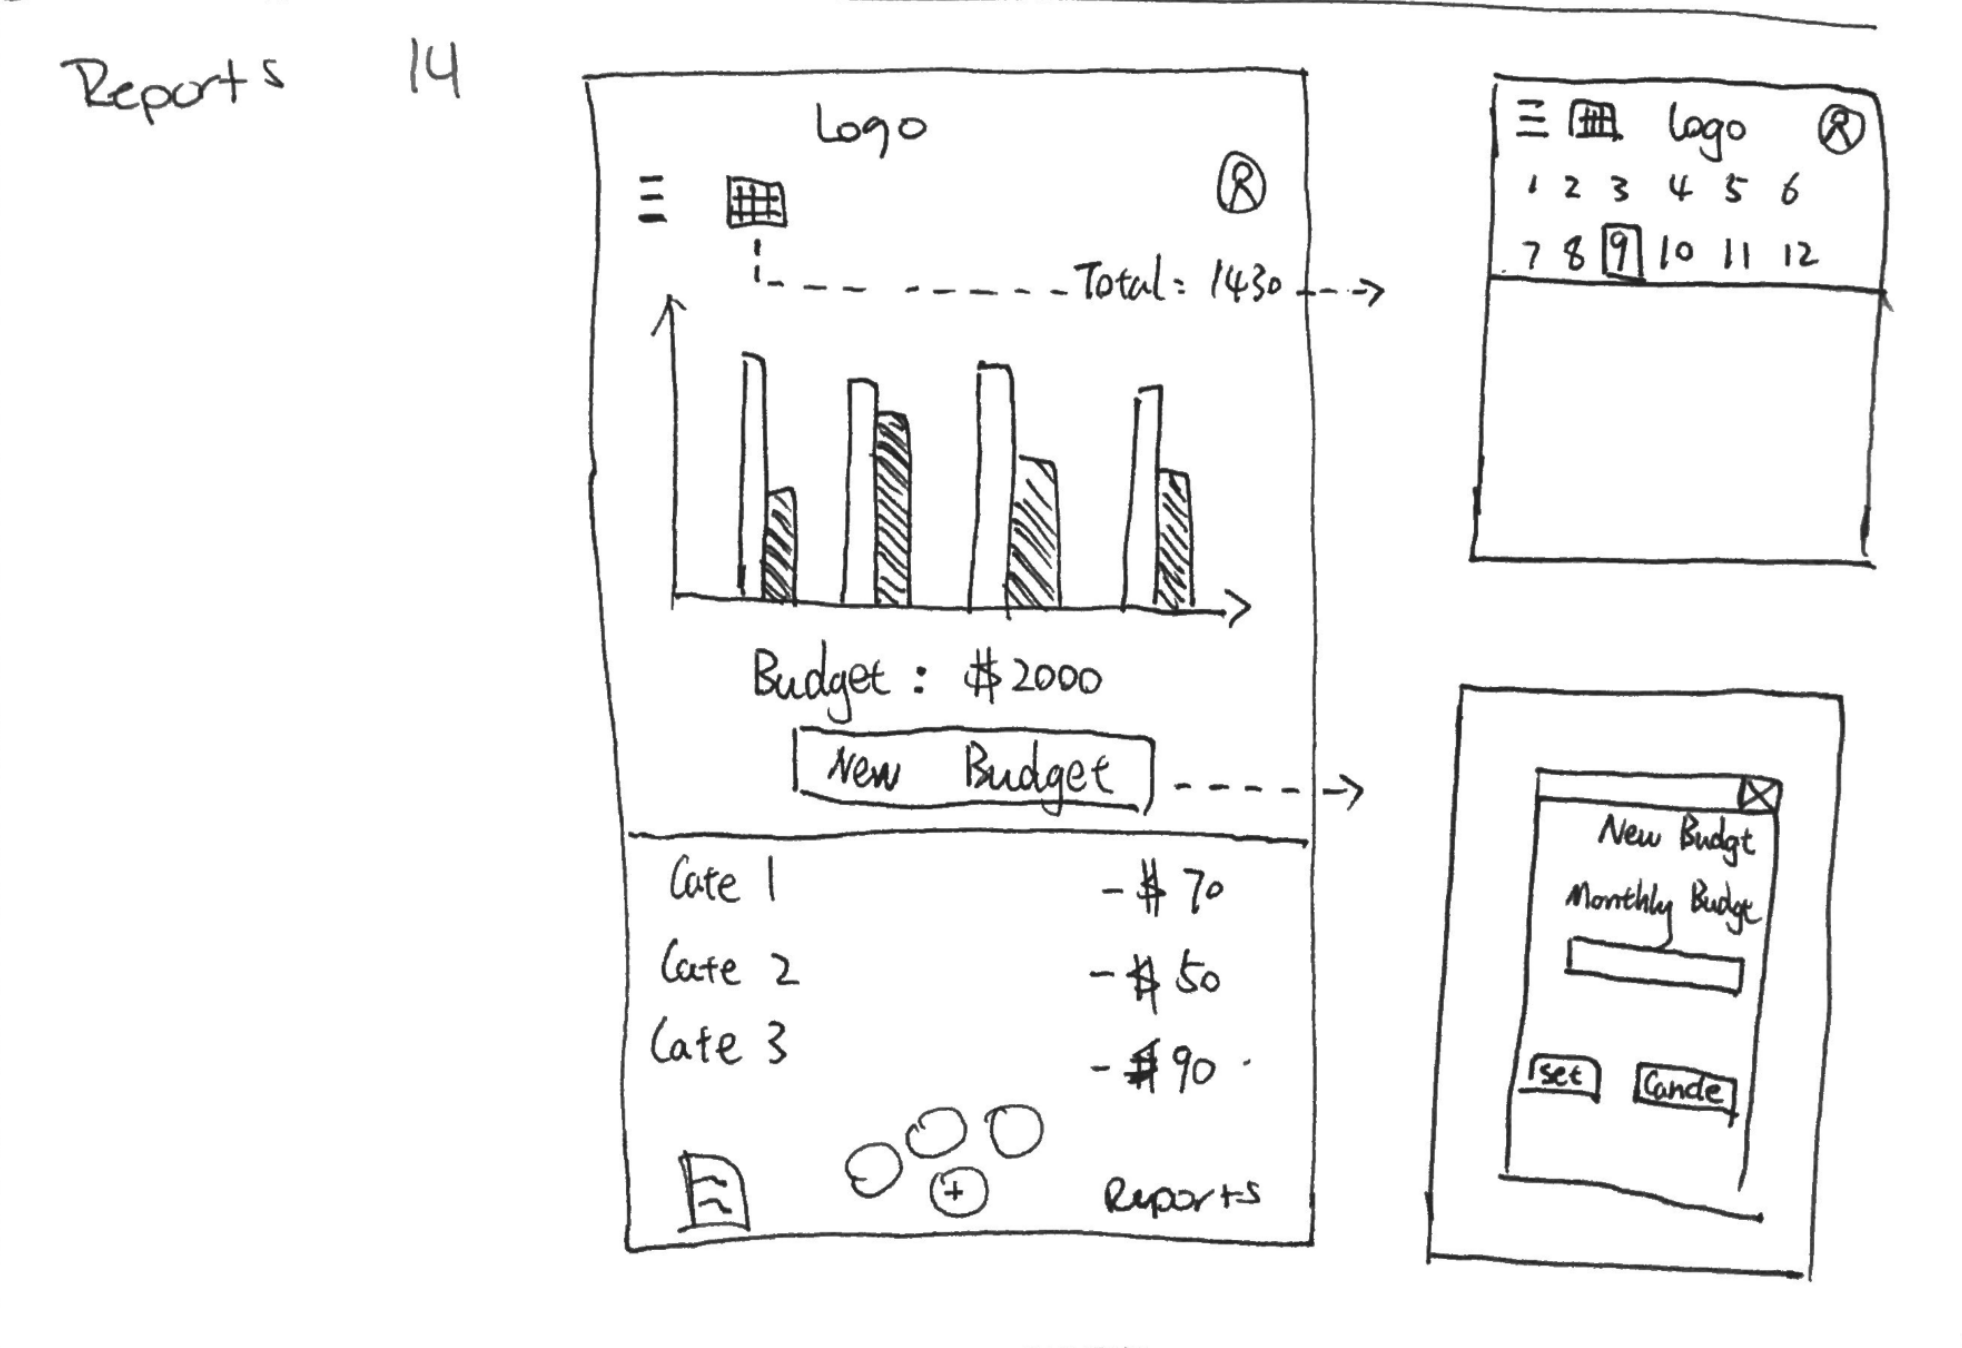 Reports 14
Logo
Total: 1430
Budget: $2000
New Budget
Cate 1 -$70
Cate 2 -$50
Cate 3 -$90
+ Reports
Logo
1 2 3 4 5 6
7 8 9 10 11 12
New Budgt
Monthly Budge
set Cancle